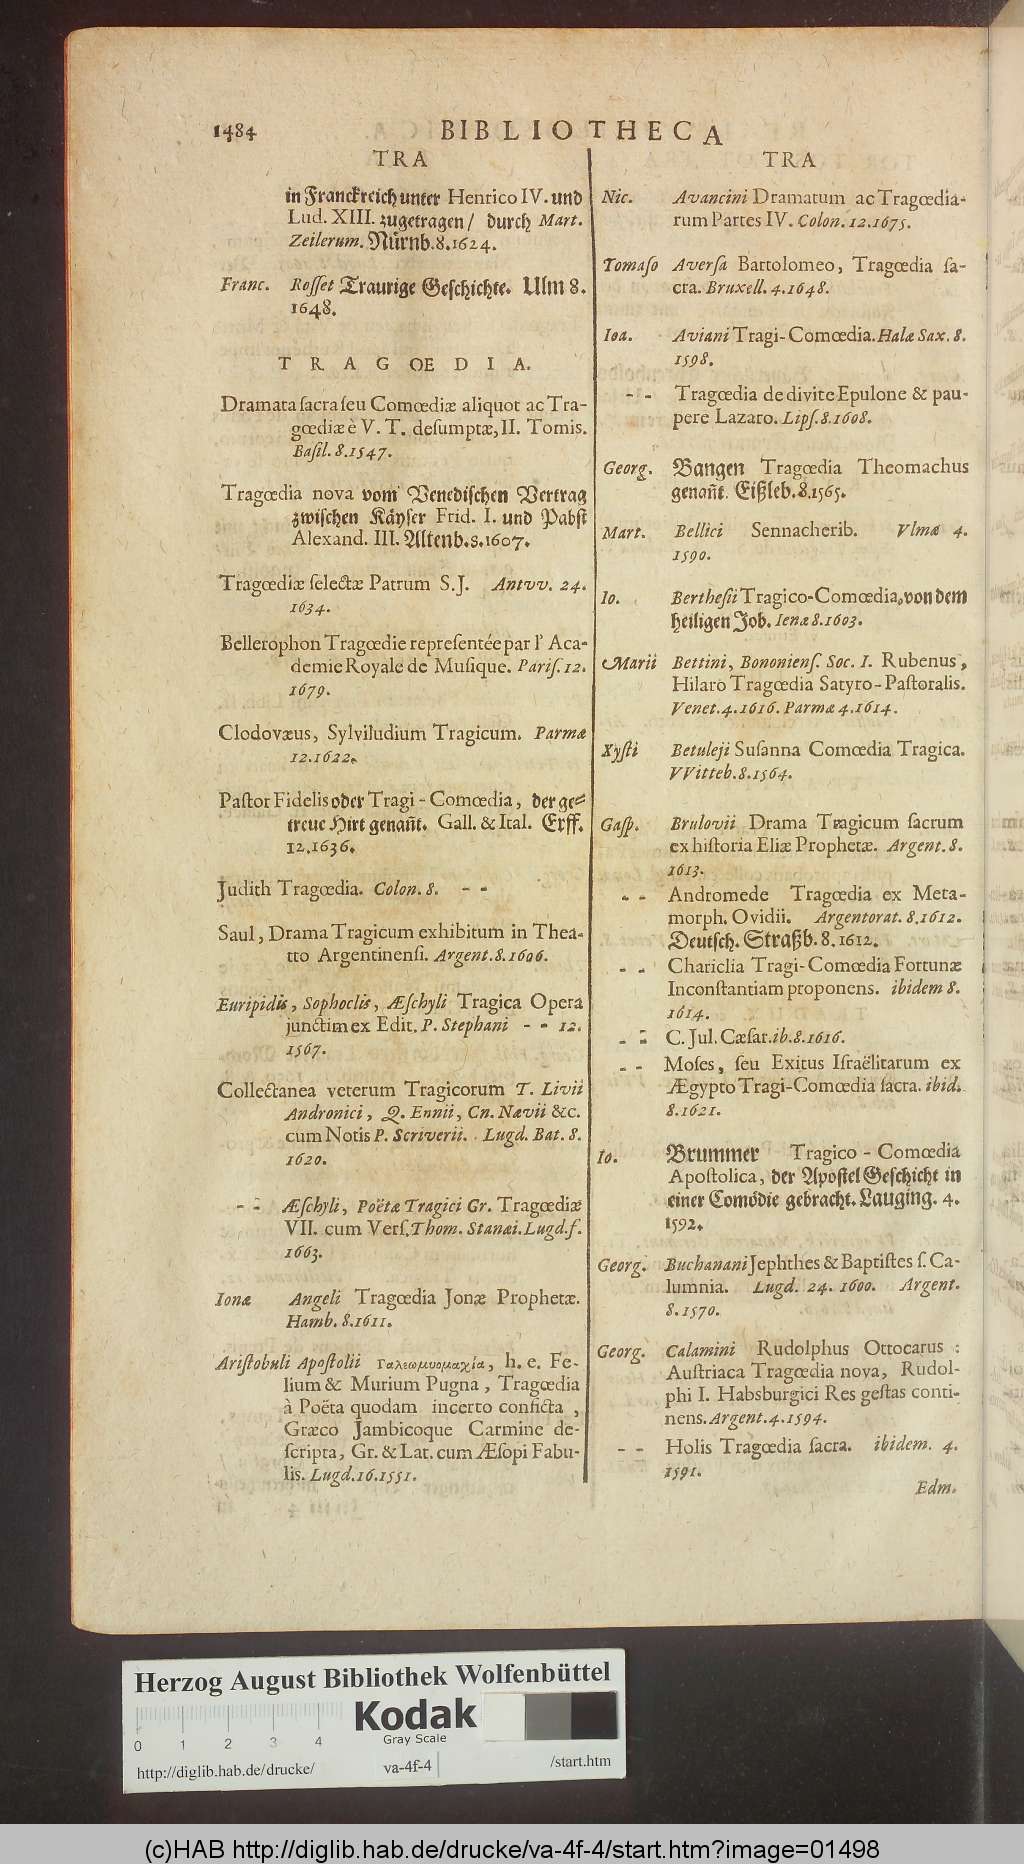 1484 BIBLIOTHECA
TRA
in Franckreich unter Henrico IV. und
Lud. XIII. zugetragen / durch Mart.
Zeilerum. Nürnb. 8. 1624.
Franc. Rosset Traurige Geschichte. Ulm 8.
1648.
TRAGOEDIA.
Dramata sacra seu Comœdiæ aliquot ac Tra-
gœdiæ è V. T. desumptæ, II. Tomis.
Basil. 8. 1547.
Tragœdia nova vom Venedischen Vertrag
zwischen Käyser Frid. I. und Pabst
Alexand. III. Altenb. 8. 1607.
Tragœdiæ selectæ Patrum S.J. Antvv. 24.
1634.
Bellerophon Tragœdie representée par l' Aca-
demie Royale de Musique. Paris. 12.
1679.
Clodovæus, Sylviludium Tragicum. Parmæ
12. 1622.
Pastor Fidelis oder Tragi-Comœdia, der ge-
treue Hirt genañt. Gall. & Ital. Erff.
12. 1636.
Judith Tragœdia. Colon. 8. - -
Saul, Drama Tragicum exhibitum in Thea-
tro Argentinensi. Argent. 8. 1606.
Euripidis, Sophoclis, Æschyli Tragica Opera
junctim ex Edit. P. Stephani - - 12.
1567.
Collectanea veterum Tragicorum T. Livii
Andronici, Q. Ennii, Cn. Nævii &c.
cum Notis P. Scriverii. Lugd. Bat. 8.
1620.
- - Æschyli, Poëtæ Tragici Gr. Tragœdiæ
VII. cum Vers. Thom. Stanæi. Lugd. f.
1663.
Ionæ Angeli Tragœdia Jonæ Prophetæ.
Hamb. 8. 1611.
Aristobuli Apostolii Γαλεωμυομαχία, h. e. Fe-
lium & Murium Pugna, Tragœdia
à Poëta quodam incerto conficta,
Græco Jambicoque Carmine de-
scripta, Gr. & Lat. cum Æsopi Fabu-
lis. Lugd. 16. 1551.
TRA
Nic. Avancini Dramatum ac Tragœdia-
rum Partes IV. Colon. 12. 1675.
Tomaso Aversa Bartolomeo, Tragœdia sa-
cra. Bruxell. 4. 1648.
Ioa. Aviani Tragi-Comœdia. Halæ Sax. 8.
1598.
- - Tragœdia de divite Epulone & pau-
pere Lazaro. Lips. 8. 1608.
Georg. Bangen Tragœdia Theomachus
genañt. Eißleb. 8. 1565.
Mart. Bellici Sennacherib. Vlmæ 4.
1590.
Io. Berthesii Tragico-Comœdia, von dem
heiligen Job. Ienæ 8. 1603.
Marii Bettini, Bononiens. Soc. I. Rubenus,
Hilaro Tragœdia Satyro-Pastoralis.
Venet. 4. 1616. Parmæ 4. 1614.
Xysti Betuleji Susanna Comœdia Tragica.
VVitteb. 8. 1564.
Gasp. Brulovii Drama Tragicum sacrum
ex historia Eliæ Prophetæ. Argent. 8.
1613.
- - Andromede Tragœdia ex Meta-
morph. Ovidii. Argentorat. 8. 1612.
Deutsch. Straßb. 8. 1612.
- - Chariclia Tragi-Comœdia Fortunæ
Inconstantiam proponens. ibidem 8.
1614.
- - C. Jul. Cæsar. ib. 8. 1616.
- - Moses, seu Exitus Israëlitarum ex
Ægypto Tragi-Comœdia sacra. ibid.
8. 1621.
Io. Brummer Tragico-Comœdia
Apostolica, der Apostel Geschicht in
einer Comödie gebracht. Lauging. 4.
1592.
Georg. Buchanani Jephthes & Baptistes s. Ca-
lumnia. Lugd. 24. 1600. Argent.
8. 1570.
Georg. Calamini Rudolphus Ottocarus:
Austriaca Tragœdia nova, Rudol-
phi I. Habsburgici Res gestas conti-
nens. Argent. 4. 1594.
- - Holis Tragœdia sacra. ibidem. 4.
1591.
Edm.
Herzog August Bibliothek Wolfenbüttel
Kodak
Gray Scale
0 1 2 3 4
http://diglib.hab.de/drucke/ va-4f-4 /start.htm
(c)HAB http://diglib.hab.de/drucke/va-4f-4/start.htm?image=01498